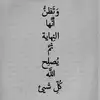 وَتَظُنُّ
أَنَّها
النِهاية
ثُمَّ
يُصلِح
اللَّٰه
كُلَّ شَيْ